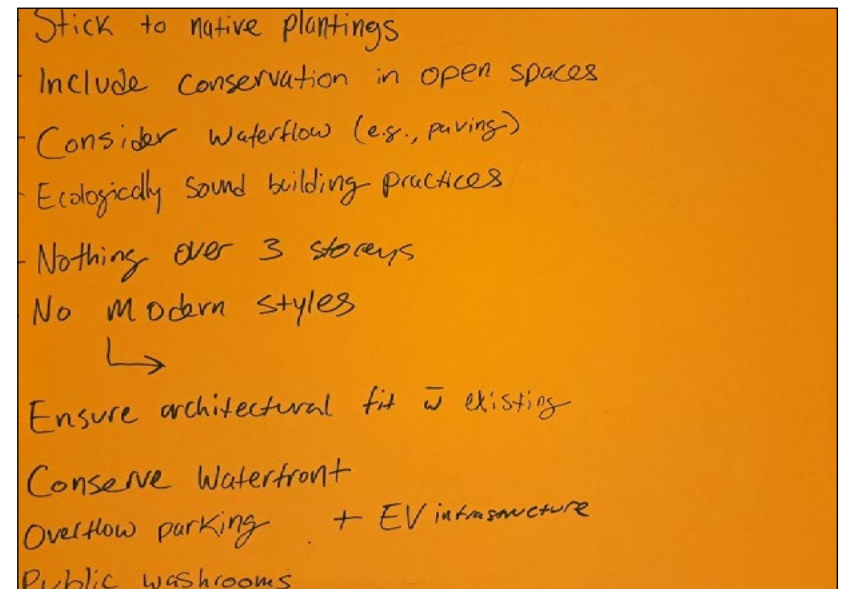 - Stick to native plantings
- Include conservation in open spaces
- Consider waterflow (e.g., paving)
- Ecologically sound building practices
- Nothing over 3 storeys
- No modern styles
Ensure architectural fit w̄ existing
Conserve Waterfront
Overflow parking + EV infrastructure
Public washrooms